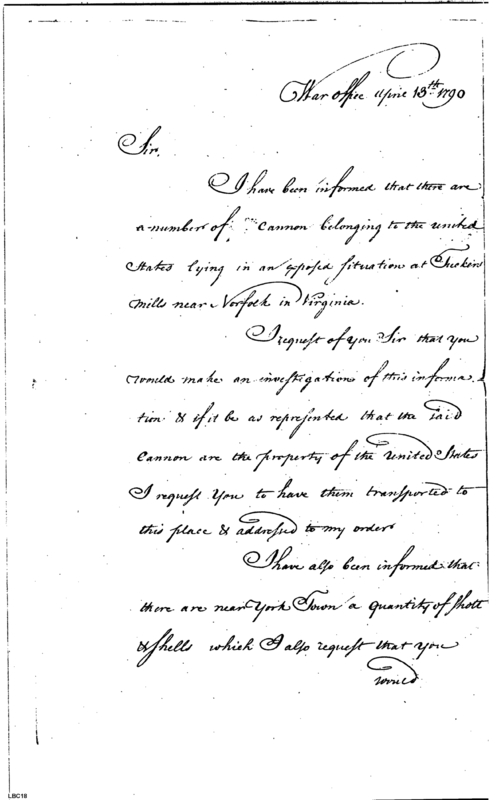 War office April 13th 1790
Sir,
I have been informed that there are
a number of Cannon belonging to the united
States lying in an exposed situation at Tuckers
mills near Norfolk in Virginia.
I request of you Sir that you
would make an investigation of this informa-
tion & if it be as represented that the said
Cannon are the property of the United States
I request You to have them transported to
this place & addressed to my order
I have also been informed that
there are near York Town a quantity of shott
& shells which I also request that you
would
LBC18